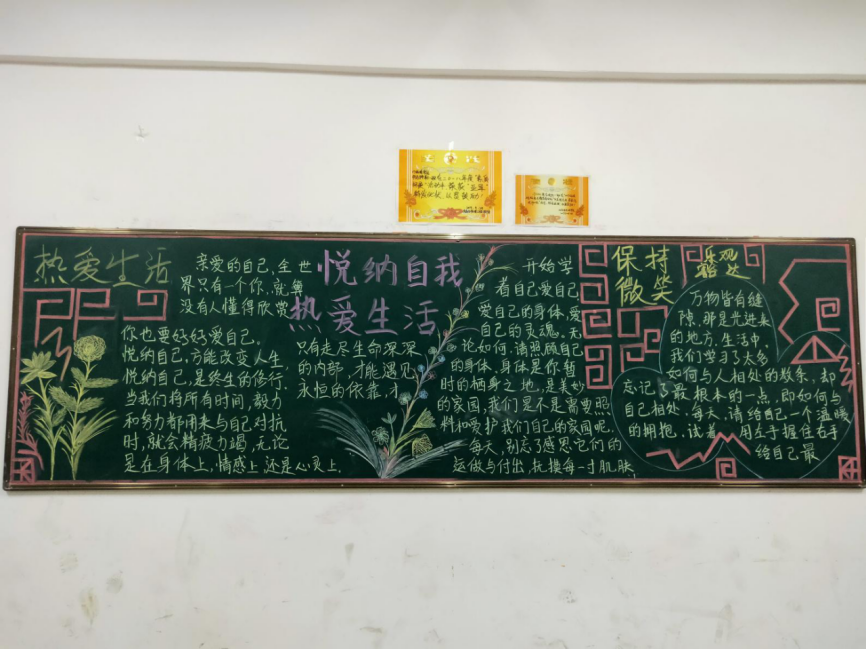 热爱生活
亲爱的自己,全世
界只有一个你,就算
没有人懂得欣赏
你也要好好爱自己。
悦纳自己,方能改变人生,
悦纳自己,是终生的修行.
当我们将所有时间,毅力
和努力都用来与自己对抗
时,就会精疲力竭,无论
是在身体上,情感上还是心灵上.
悦纳自我
热爱生活
只有走尽生命深深
的内部,才能遇见
永恒的依靠,才
开始学
着自己爱自己
爱自己的身体,爱
自己的灵魂。无
论如何,请照顾自己
的身体,身体是你暂
时的栖身之地,是美妙
的家园,我们是不是需要照
料和爱护我们自己的家园呢.
每天,别忘了感恩它们的
运做与付出,抚摸每一寸肌肤,
保持
微笑
乐观
豁达
万物皆有缝
隙,那是光进来
的地方.生活中,
我们学习了太多
如何与人相处的教条,却
忘记了最根本的一点,即如何与
自己相处,每天,请给自己一个温暖
的拥抱,试着,用左手握住右手
给自己最